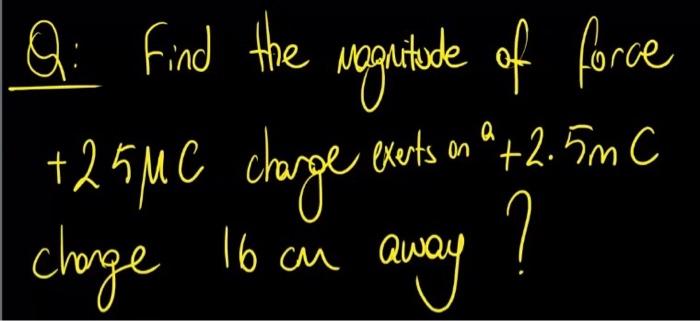 Q: Find the magnitude of force
+25μC charge exerts on a +2.5mC
charge 16 cm away ?